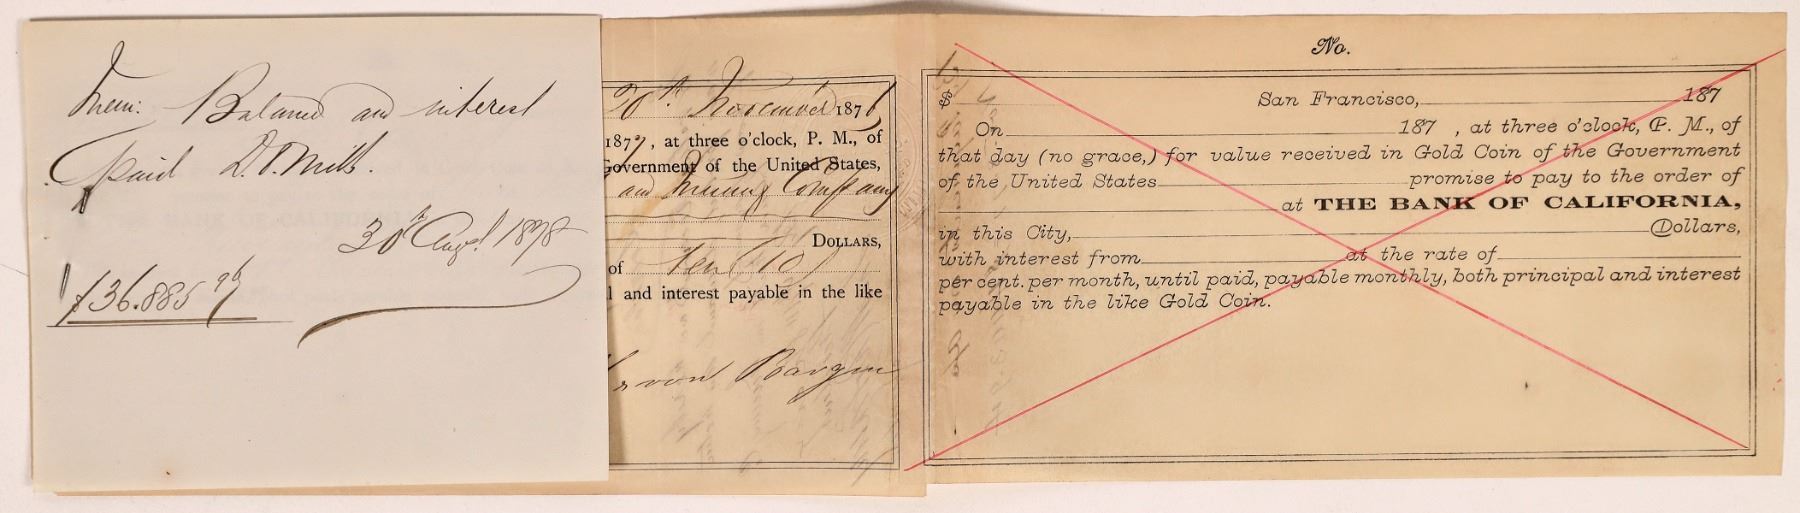 Mem: Balance and interest
paid D.O. Mills.
30th Augst 1878
$36.885 96
20th November 1876
1877, at three o'clock, P. M., of
Government of the United States,
and Mining Company
DOLLARS,
of Ten (10)
and interest payable in the like
No.
$
San Francisco, 187
On 187 , at three o'clock, P. M., of
that day (no grace,) for value received in Gold Coin of the Government
of the United States promise to pay to the order of
at THE BANK OF CALIFORNIA,
in this City, Dollars,
with interest from at the rate of
per cent. per month, until paid, payable monthly, both principal and interest
payable in the like Gold Coin.